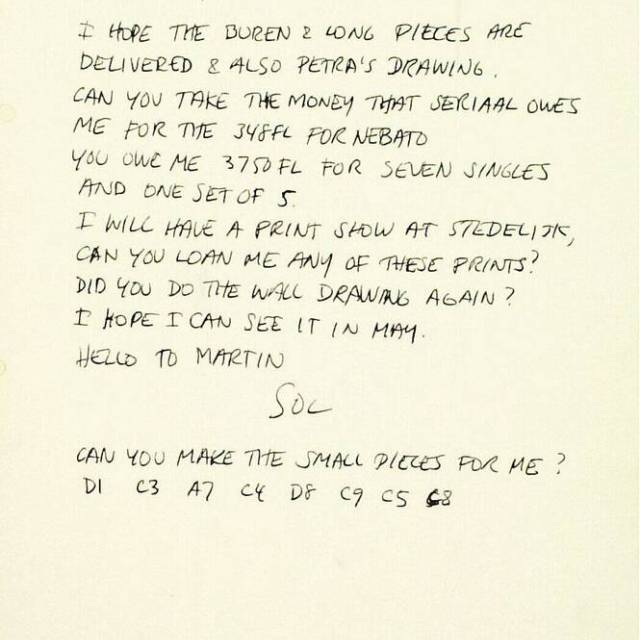 I HOPE THE BUREN & LONG PIECES ARE
DELIVERED & ALSO PETRA'S DRAWING.
CAN YOU TAKE THE MONEY THAT SERIAAL OWES
ME FOR THE 348FL FOR NEBATO
YOU OWE ME 3750FL FOR SEVEN SINGLES
AND ONE SET OF 5.
I WILL HAVE A PRINT SHOW AT STEDELIJK,
CAN YOU LOAN ME ANY OF THESE PRINTS?
DID YOU DO THE WALL DRAWING AGAIN?
I HOPE I CAN SEE IT IN MAY.
HELLO TO MARTIN
SOL
CAN YOU MAKE THE SMALL PIECES FOR ME?
D1 C3 A7 C4 D8 C9 C5 C8